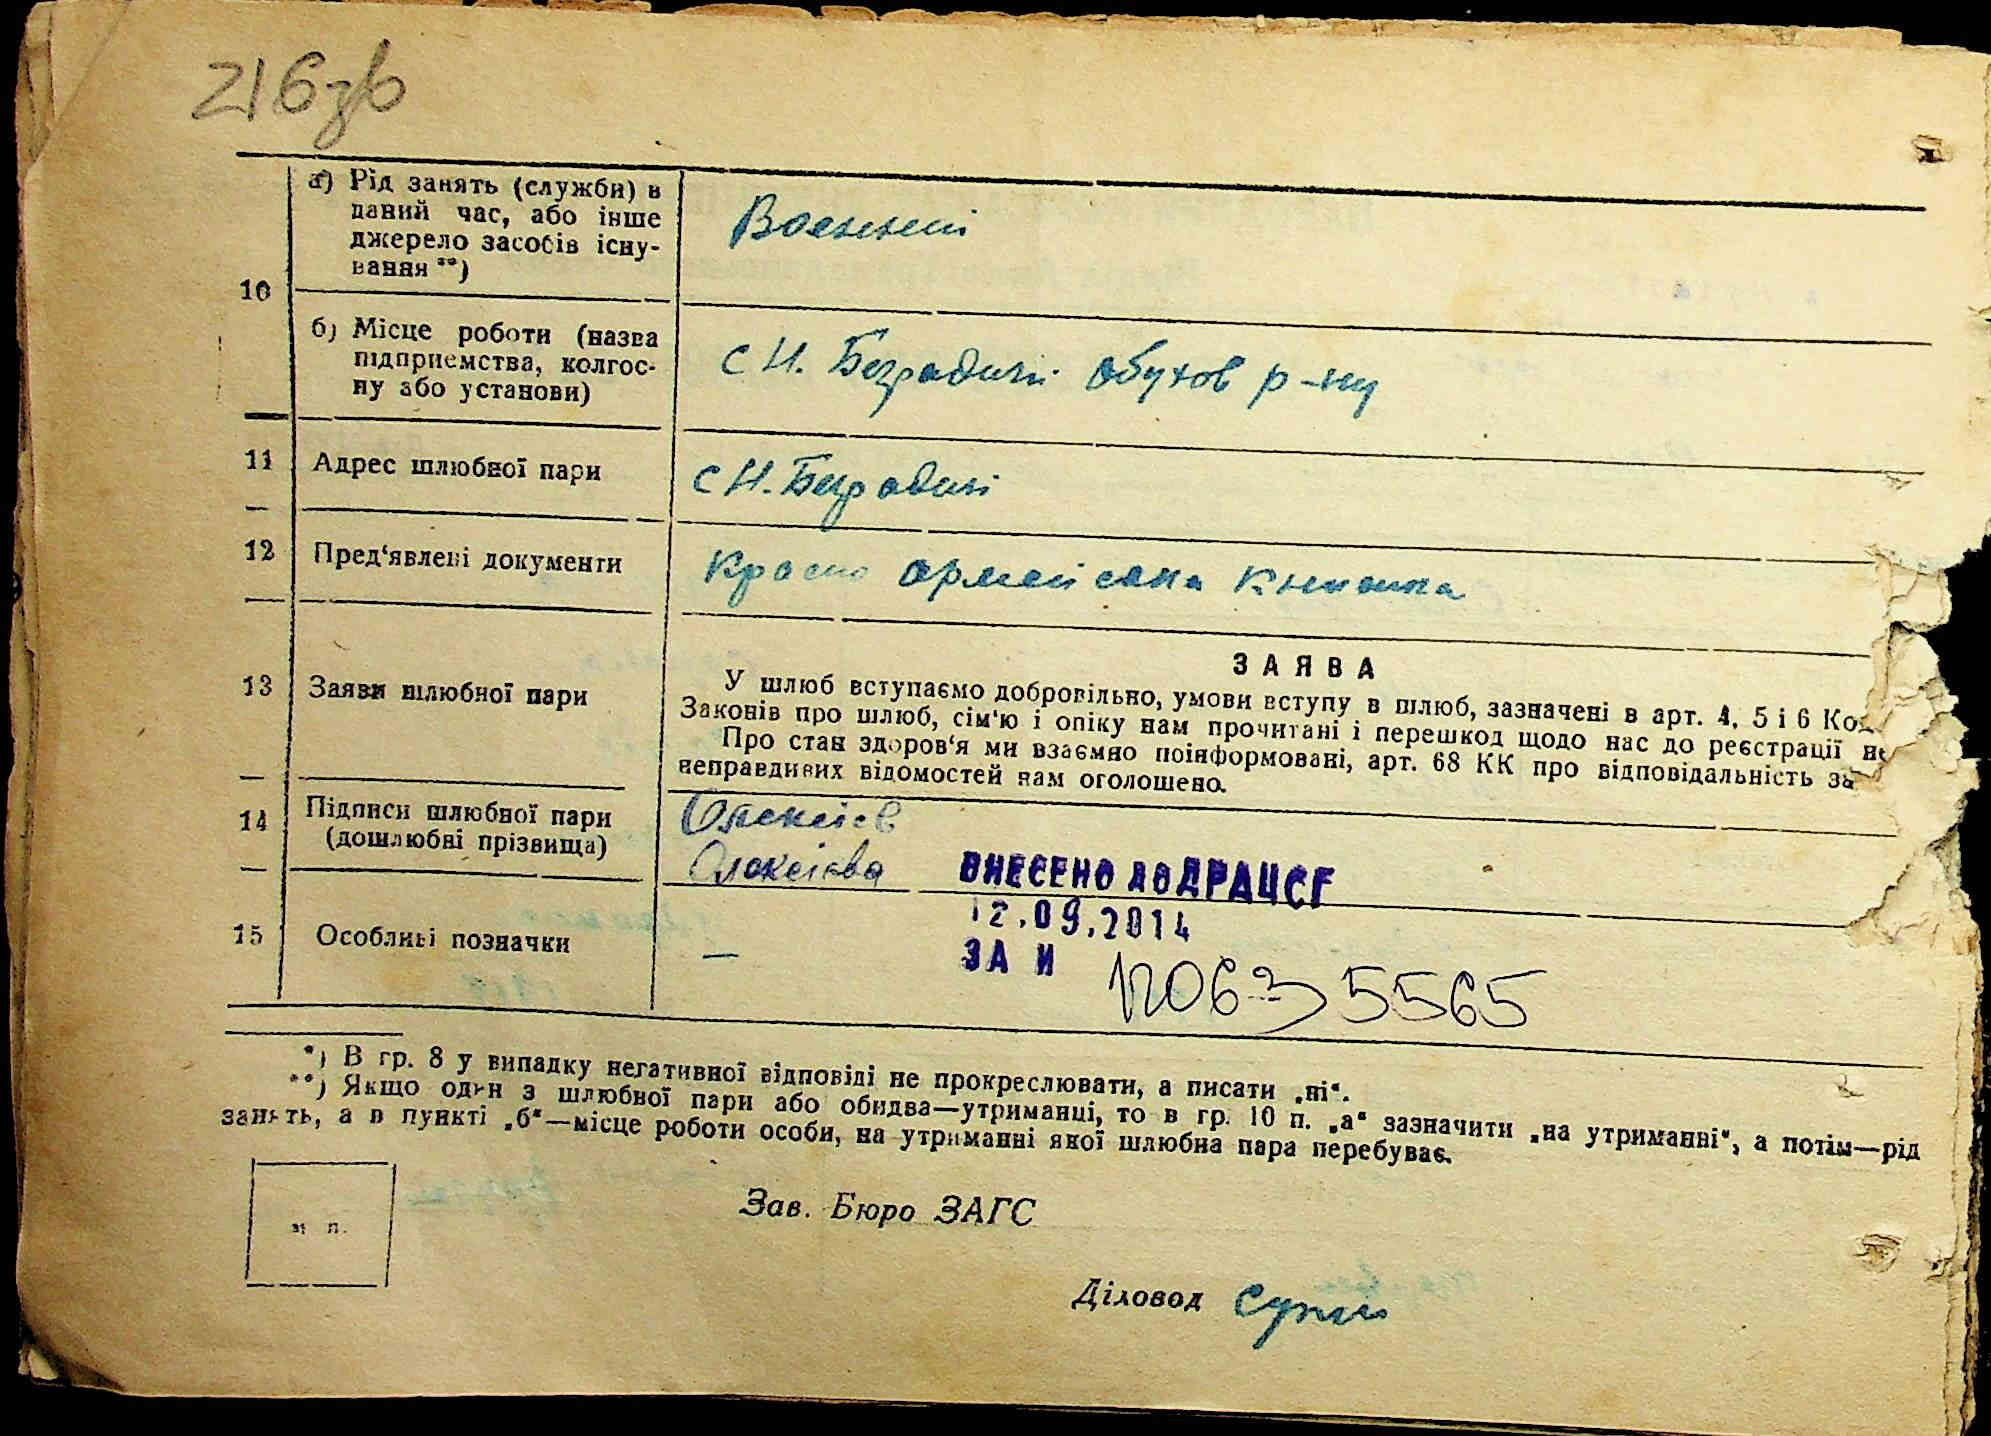 216зв
а) Рід занять (служби) в
даний час, або інше
джерело засобів існу-
вання **)
Воєнний
10
б) Місце роботи (назва
підприємства, колгос-
пу або установи)
с Н. Безрадичі Обухов р-ну
11 Адрес шлюбної пари
с Н. Безрадичі
12 Пред‘явлені документи
Красно армейська книжка
13 Заяви шлюбної пари
ЗАЯВА
У шлюб вступаємо добровільно, умови вступу в шлюб, зазначені в арт. 4, 5 і 6 Код
Законів про шлюб, сім‘ю і опіку нам прочитані і перешкод щодо нас до реєстрації не
Про стан здоров‘я ми взаємно поінформовані, арт. 68 КК про відповідальність за
неправдивих відомостей нам оголошено.
14 Підписи шлюбної пари
(дошлюбні прізвища)
Олексієв
Олексієва
ВНЕСЕНО ДО ДРАЦСГ
12.09.2014
15 Особливі позначки
—
ЗА №
00635565
*) В гр. 8 у випадку негативної відповіді не прокреслювати, а писати „ні“.
**) Якщо один з шлюбної пари або обидва—утриманці, то в гр. 10 п. „а“ зазначити „на утриманні“, а потім—рід
занять, а в пункті „б“—місце роботи особи, на утриманні якої шлюбна пара перебуває.
м п.
Зав. Бюро ЗАГС
Діловод